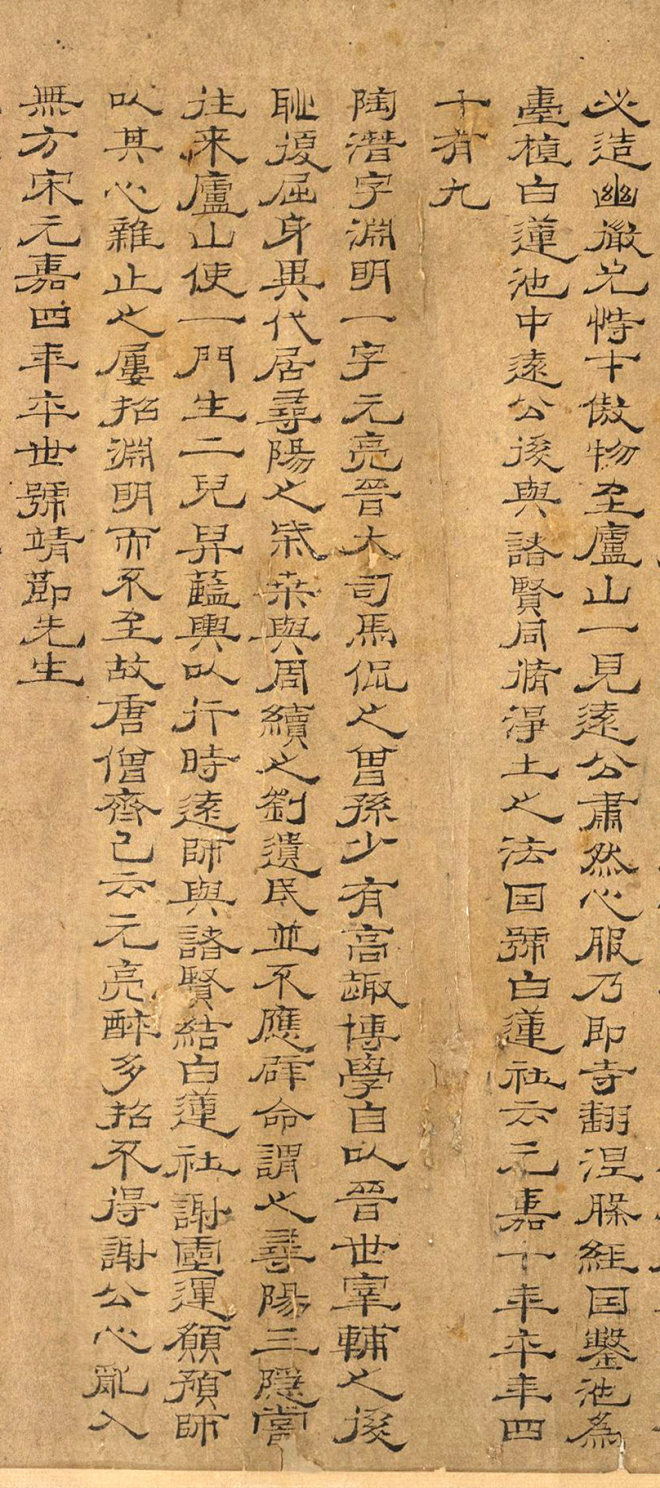 必造幽微允恃才傲物至廬山一見遠公肅然心服乃即寺翻涅槃經因鑿池為
臺植白蓮池中遠公後與諸賢同脩淨土之法因號白蓮社云元嘉十年卒年四
十有九
陶潛字淵明一字元亮晉大司馬侃之曾孫少有高趣博學自以晉世宰輔之後
恥復屈身異代居尋陽之柴桒與周續之劉遺民並不應辟命謂之尋陽三隱嘗
往来廬山使一門生二兒舁藍輿以行時遠師與諸賢結白蓮社謝靈運願預師
以其心雜止之屢招淵明而不至故唐僧齊己云元亮醉多招不得謝公心亂入
無方宋元嘉四年卒世號靖節先生